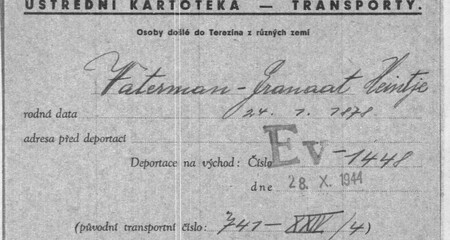 ÚSTŘEDNÍ KARTOTÉKA — TRANSPORTY.
Osoby došlé do Terezína z různých zemí
Waterman-Granaat Heintje
rodná data 24. 1. 1878
adresa před deportací
Deportace na východ: Číslo Ev-1448
dne 28. X. 1944
(původní transportní číslo: 741-XXIV/4)